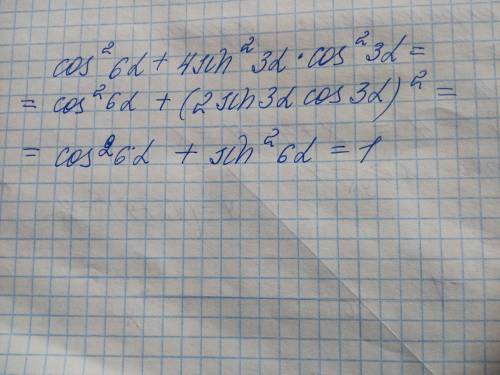 cos²6α + 4sin²3α · cos²3α =
= cos²6α + (2sin3α cos3α)² =
= cos²6α + sin²6α = 1